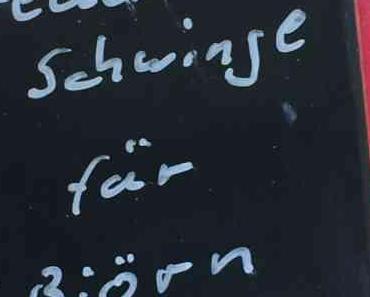 Schwinge
für
Björn